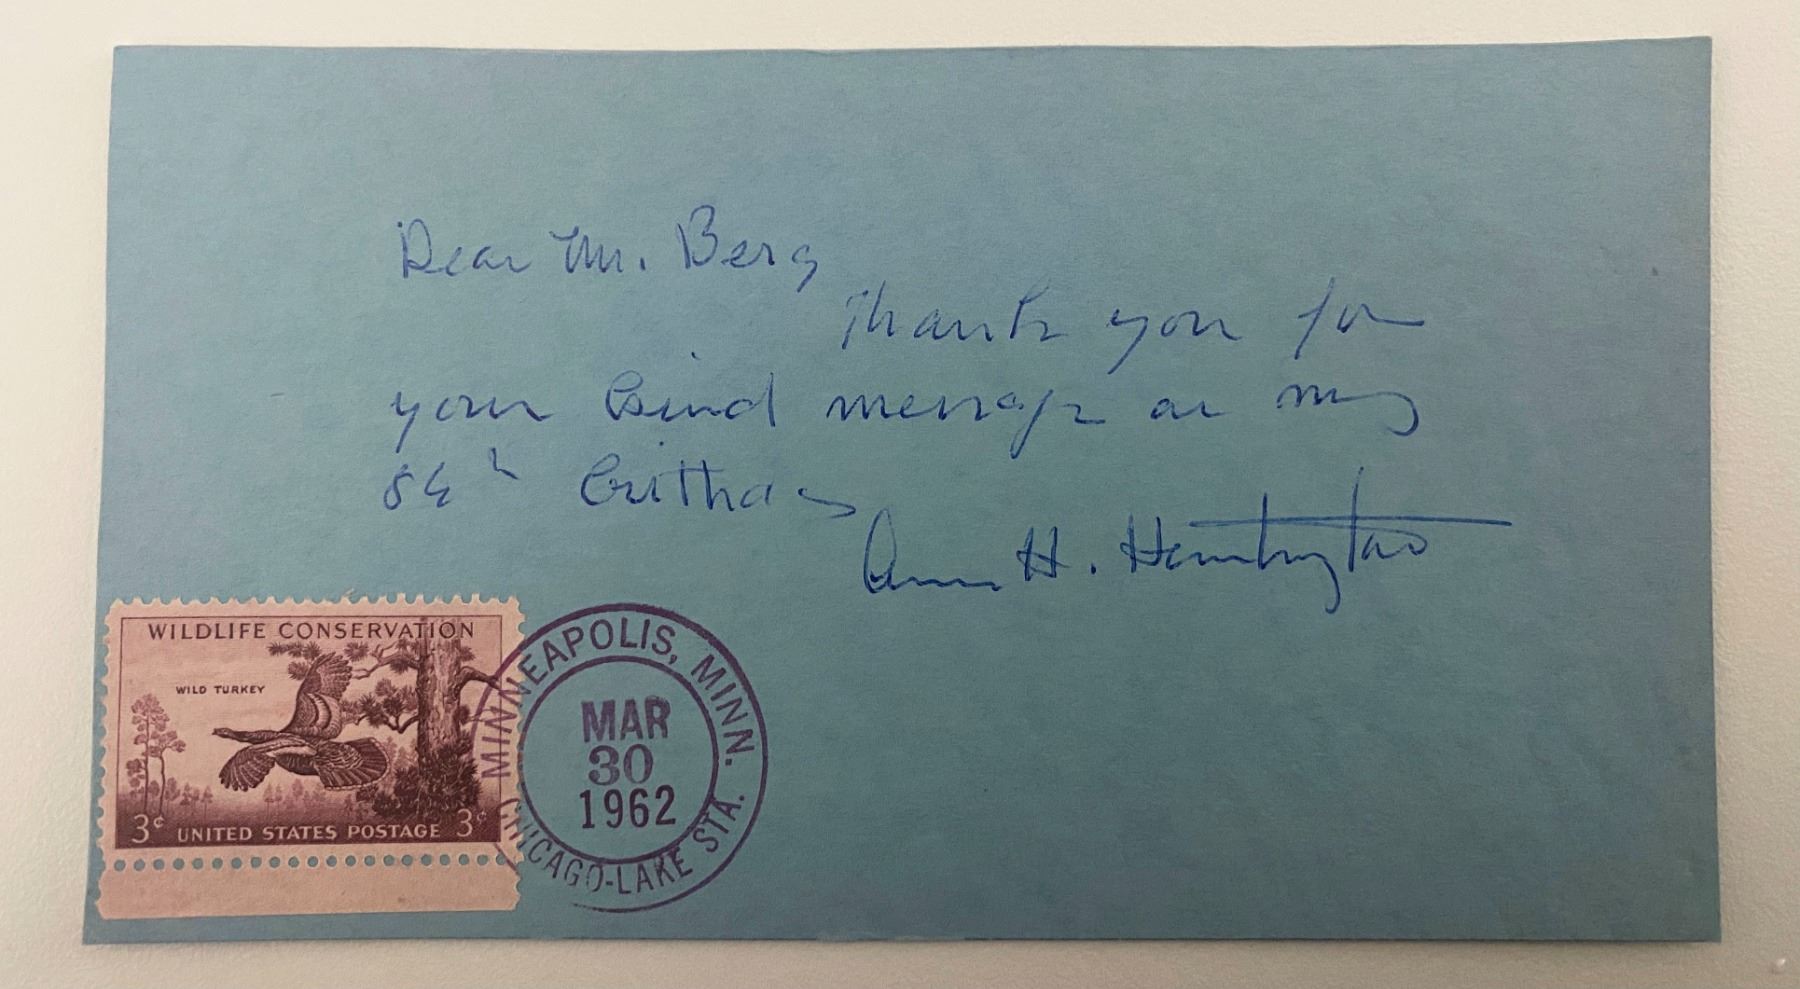 Dear Mr. Berg
Thank you for
your kind message on my
86th birthday
Anna H. Huntington
WILDLIFE CONSERVATION
WILD TURKEY
3¢ UNITED STATES POSTAGE 3¢
MINNEAPOLIS, MINN.
MAR
30
1962
CHICAGO-LAKE STA.